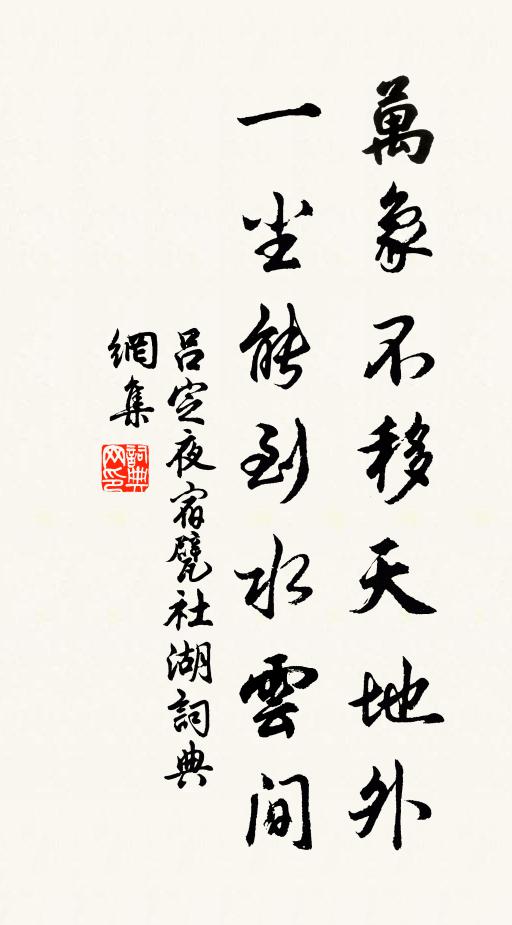 萬象不移天地外
一塵能到水雲間
呂定夜宿甓社湖詞典
網集
詞典
网印